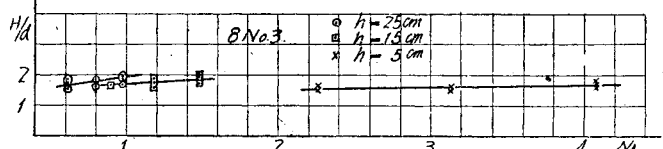 H/d
8 No.3.
⊙ h = 25 cm
⊡ h = 15 cm
× h = 5 cm
2
1
1 2 3 4